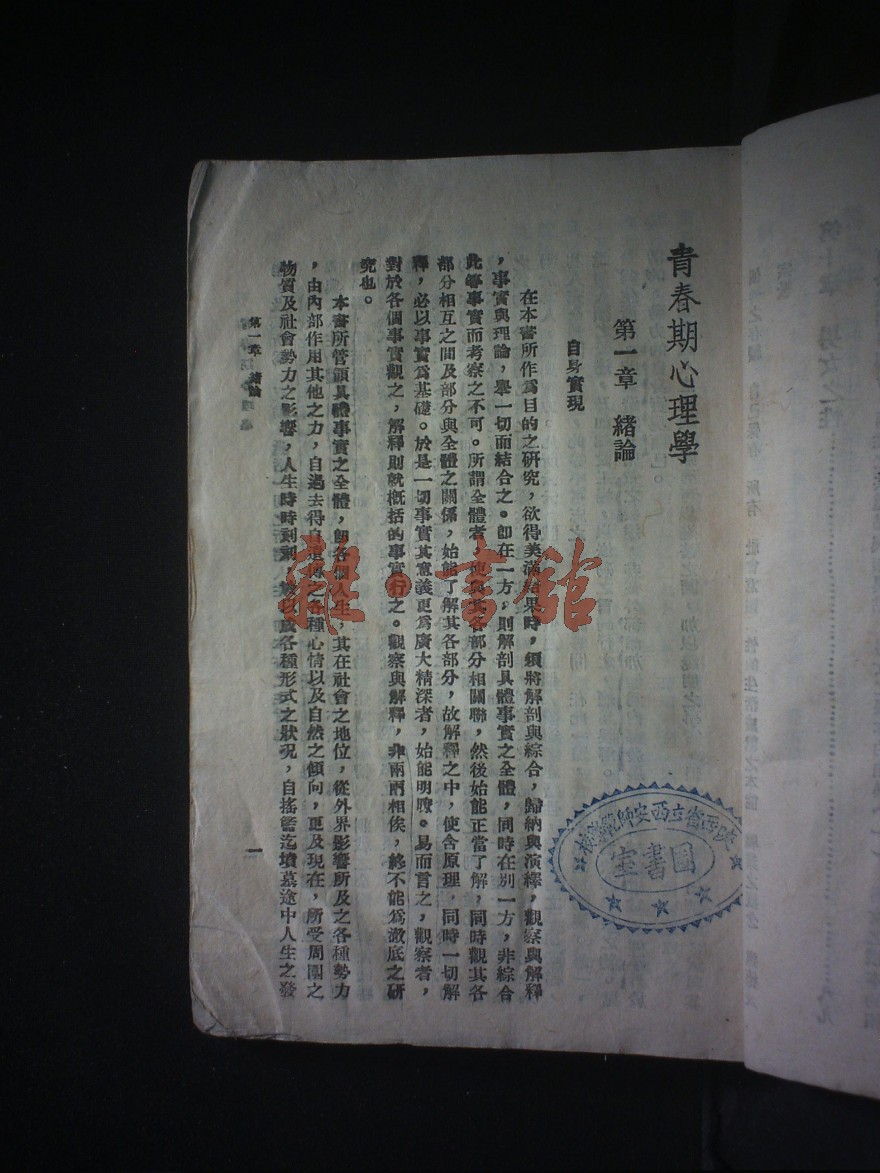 青春期心理學
第一章　緒論
自身實現
在本書所作爲目的之研究，欲得美滿結果時，須將解剖與綜合，歸納與演繹，觀察與解釋
，事實與理論，舉一切而結合之。卽在一方，則解剖具體事實之全體，同時在別一方，非綜合
此等事實而考察之不可。所謂全體者，使與其各部分相關聯，然後始能正當了解，同時觀其各
部分相互之間及部分與全體之關係，始能了解其各部分，故解釋之中，使含原理，同時一切解
釋，必以事實爲基礎。於是一切事實其意義更爲廣大精深者，始能明暸。易而言之，觀察者，
對於各個事實觀之，解釋則就概括的事實行之。觀察與解釋，非兩兩相俟，終不能爲澈底之研
究也。
本書所管領具體事實之全體，卽各個人生，其在社會之地位，從外界影響所及之各種勢力
，由內部作用其他之力，自過去得自遺傳之各種心情以及自然之傾向，更及現在，所受周圍之
物質及社會勢力之影響，人生時時刻刻，以成各種形式之狀況，自搖籃迄墳墓途中人生之發
第一章　緒論
一
雜·書館
陝西省立西安師範學校
圖書室